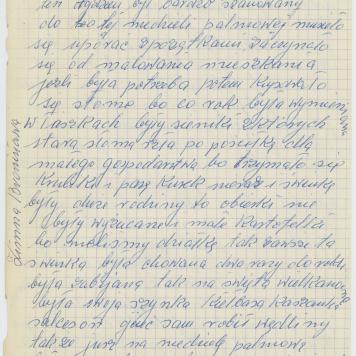 ten tydzień był bardzo szanowany
do tej niedzieli palmowej musiało
się uporać z porządkami zaczynało
się od malowania mieszkania
jeśli była potrzeba potem
się słome bo co rok była wymieniana
w Laskach były sienniki
stara słoma szła po pościółkę dla
małego gospodarstwa bo trzymało się
króliki i parę kurek nieraz i świnkę
były duże rodziny to obierki nie
były wyrzucane i małe kartofelki
bo mieliśmy działkę tak zawsze ta
świnka była chowana dwa razy do roku
była zabijana tak na święta wielkanocne
była swoja szynka kiełbasa kaszanka
salceson ojciec sam robił wędliny
także już na niedzielę palmową
Zimna Bronisława